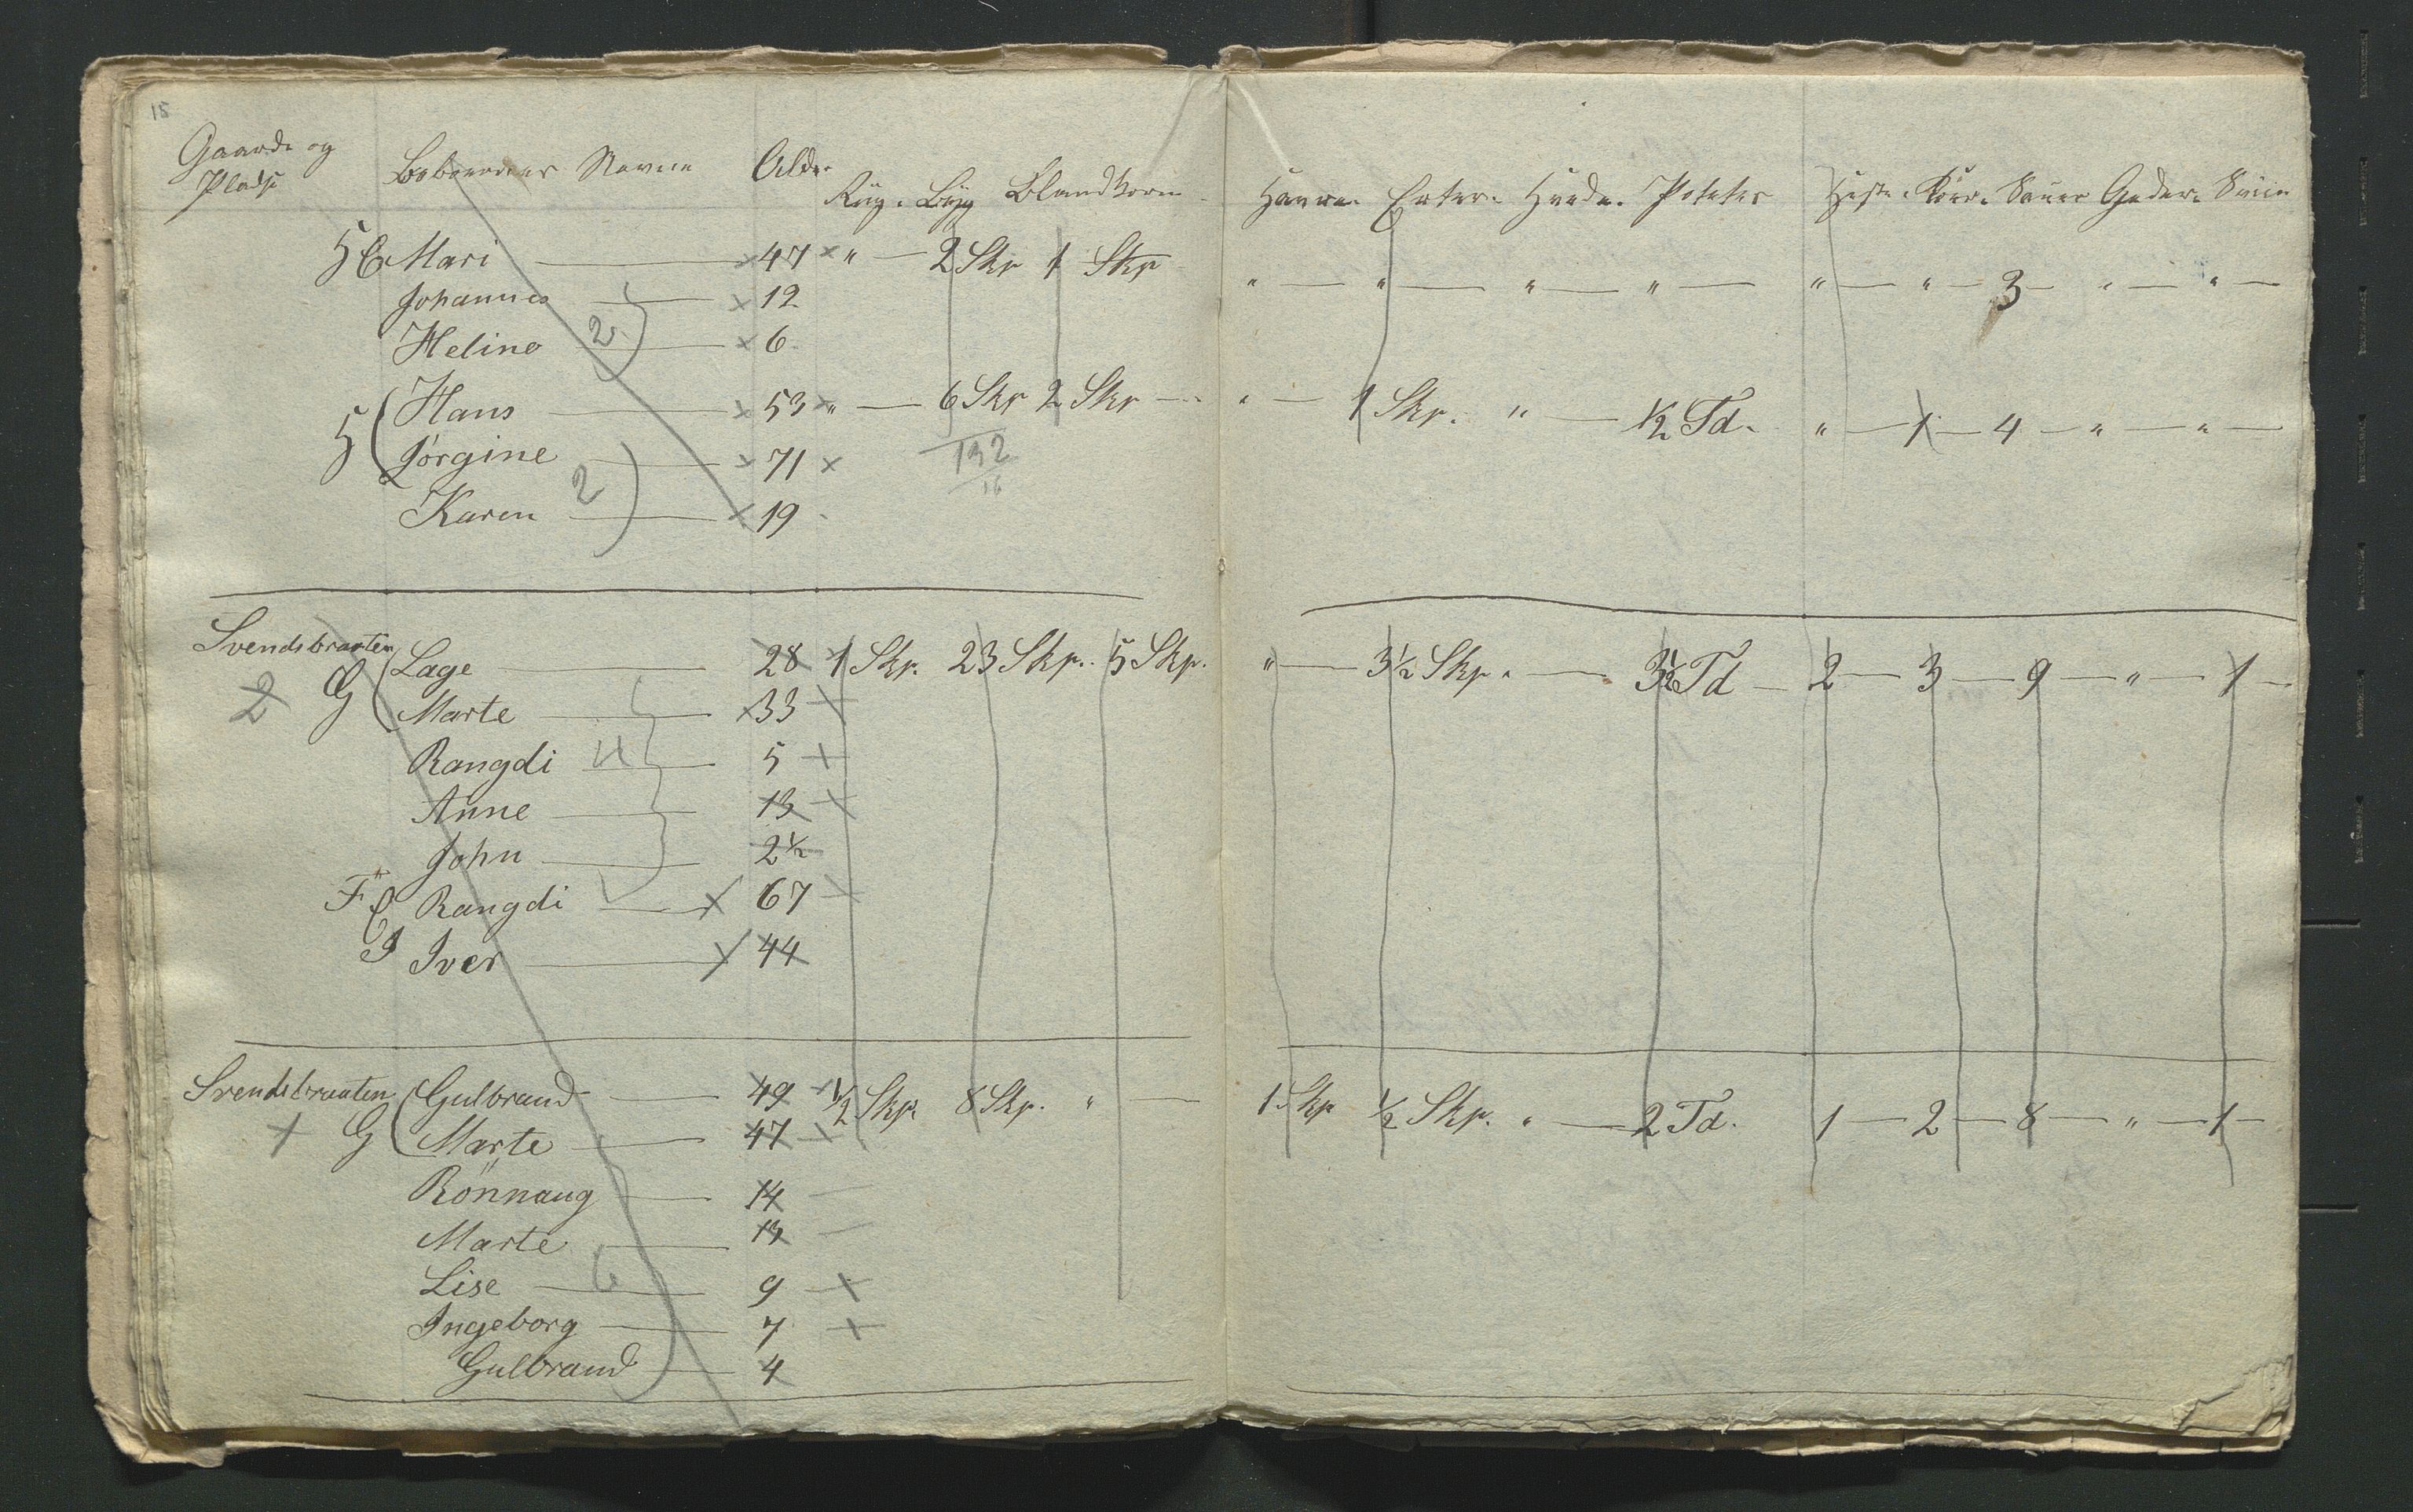 15
Gaarde og
Pladse Beboernes Navne Alder
Rüg. Büg Blandkorn Havre. Erter. Hvede. Poteter Heste. Köer. Sauer Geder. Sviin
H E Mari 47 " 2 Skp 1 Skp " " " " " " 3 " "
Johannes 12
2
Heline 6
H Hans 53 " 6 Skp 2 Skp " 1 Skp. " ½ Td. " 1 4 " "
Jörgine 71 192
16
2
Karen 19
Svendsbraaten Lage 28 1 Skp. 23 Skp. 5 Skp. " 3½ Skp. " 3½ Td 2 3 9 " 1
2 G Marte 33
Rangdi 4 5
Anne 13
John 2½
F E Rangdi 67
I Iver 44
Svendsbraaten Gulbrand 49 ½ Skp. 8 Skp. " 1 Skp ½ Skp. " 2 Td. 1 2 8 " 1
G Marte 47
Rönnaug 14
Marte 13
Lise 6 9
Ingeborg 7
Gulbrand 4